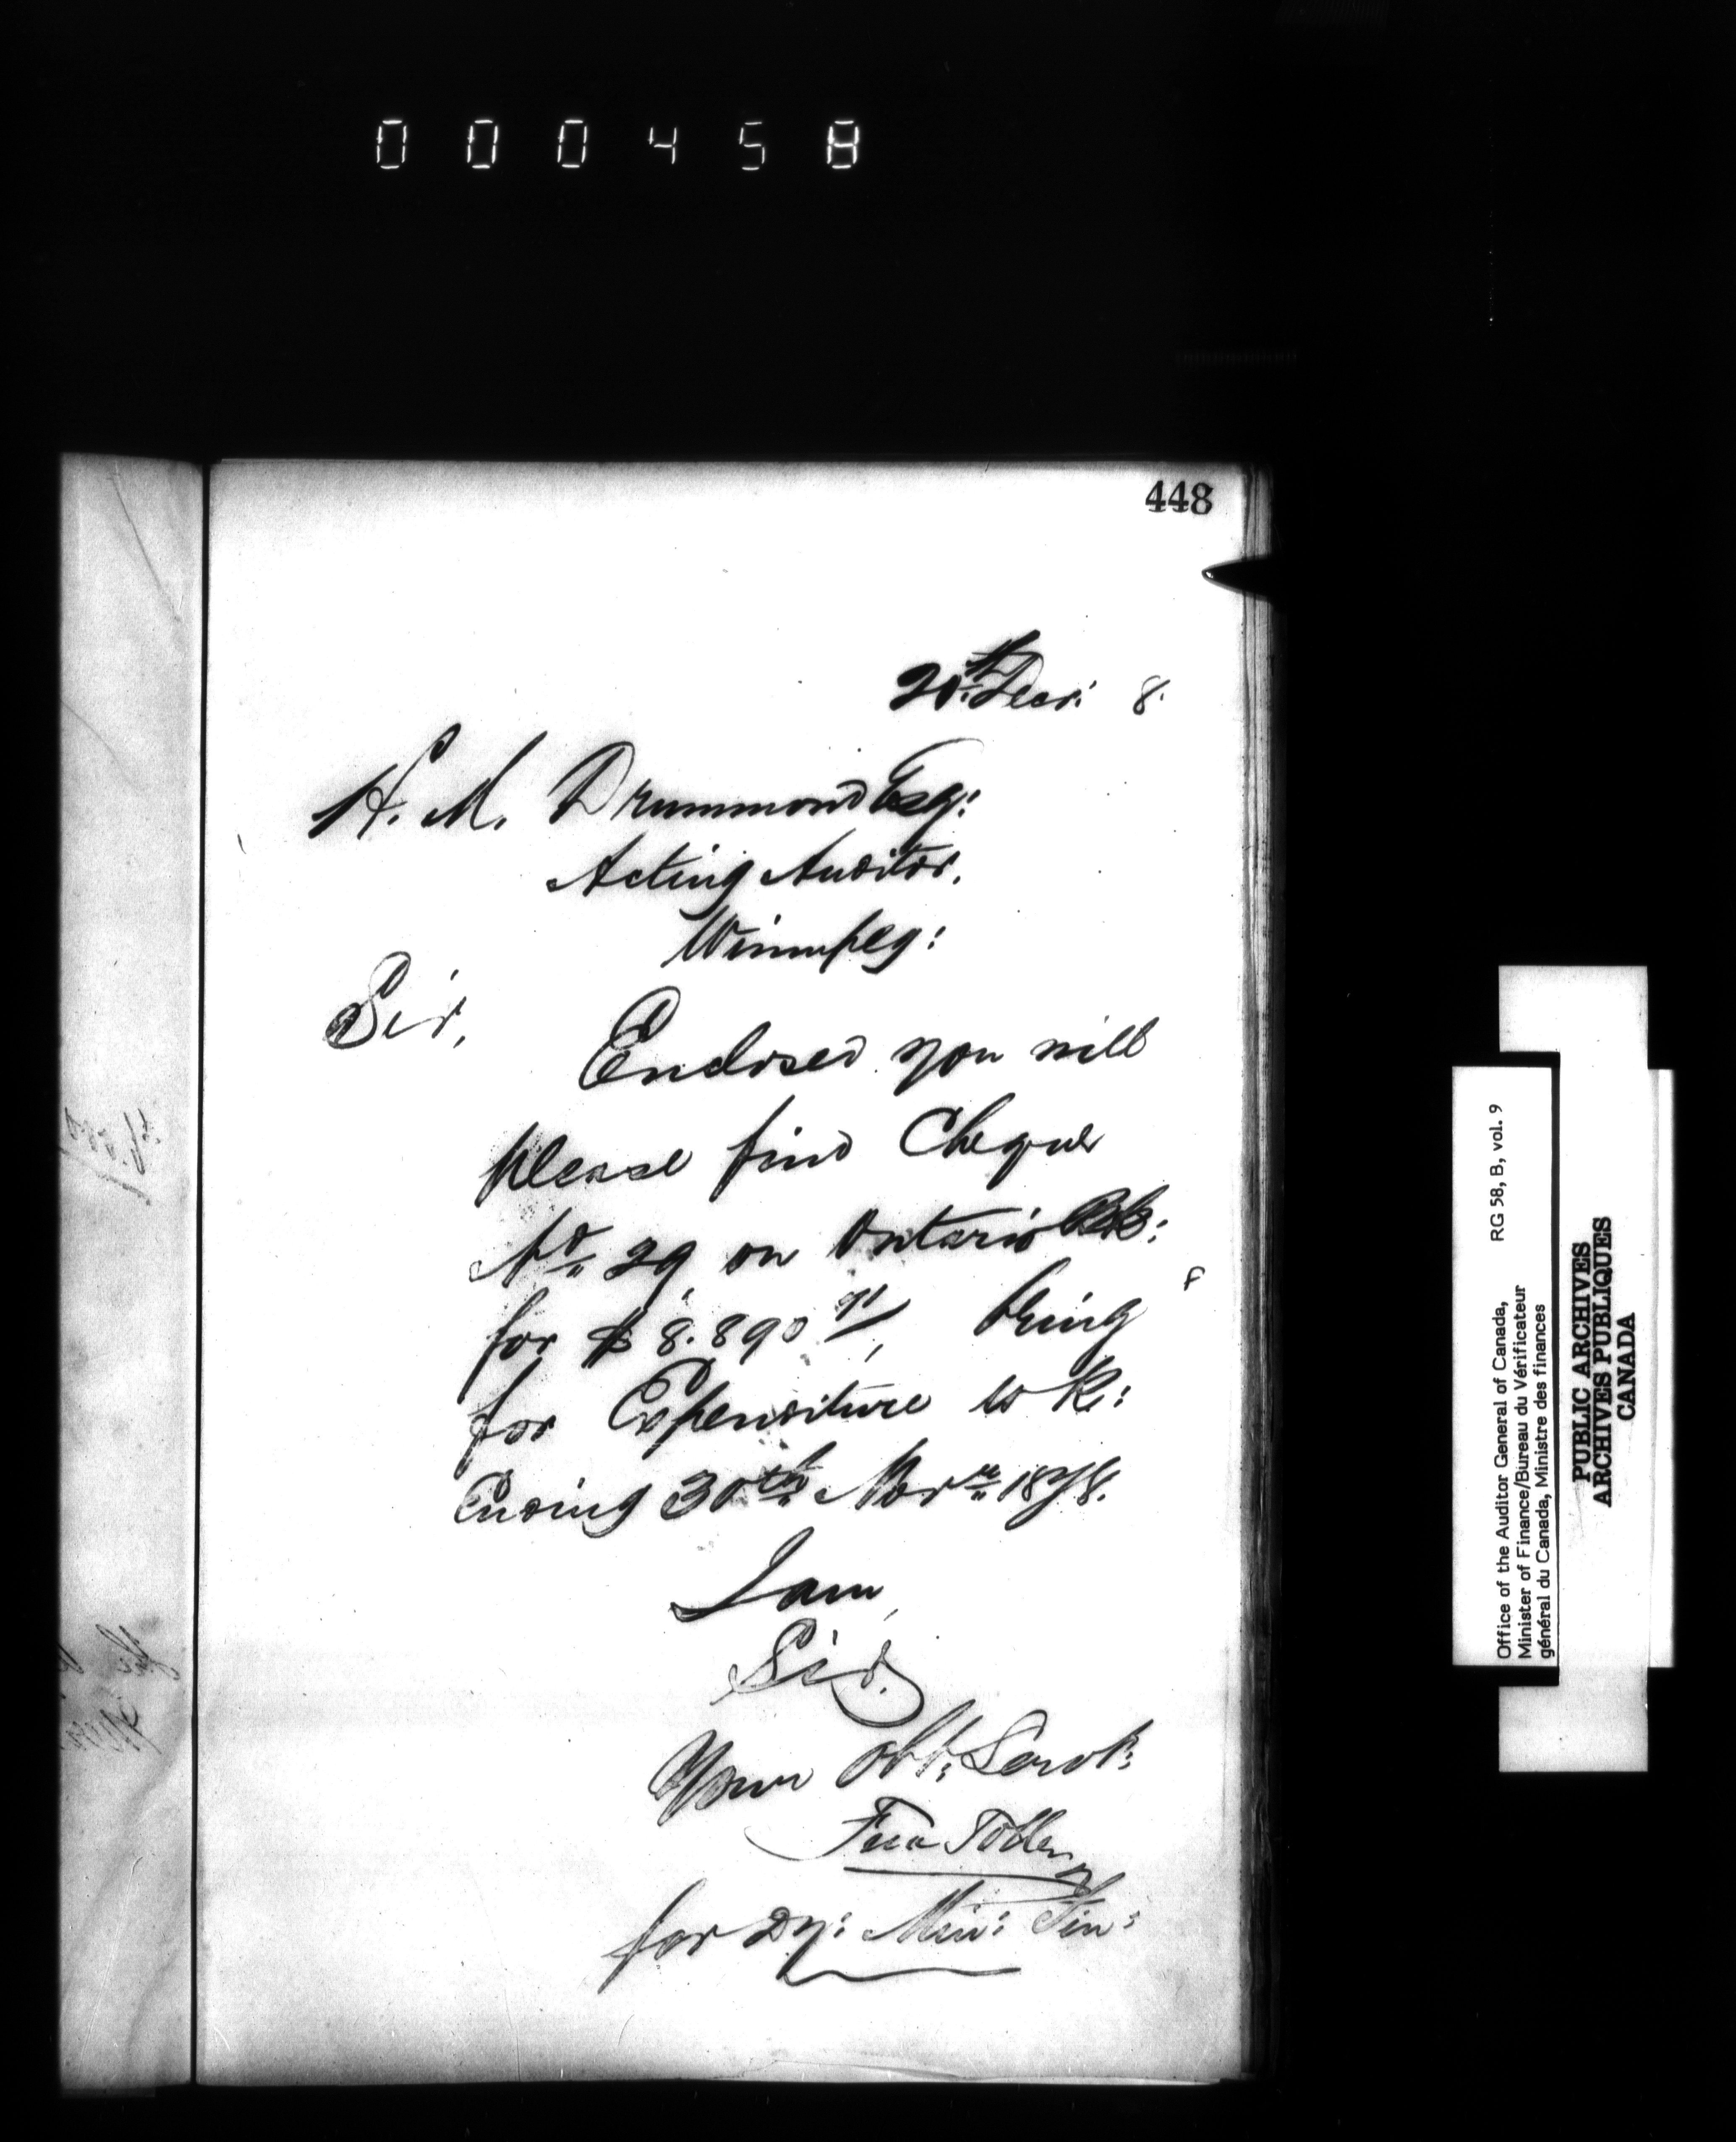 000458
448
20th Decr: 8.
H. M. Drummond Esq:
Acting Auditor,
Winnipeg:
Sir,
Enclosed you will
please find Cheque
No. 29 on Ontario Bk:
for $8.890 91/, being
for Expenditure wk:
Ending 30th Novr. 1878.
I am,
Sir.
Your Obt: Servt:
for Dy: Min: Fin:
Office of the Auditor General of Canada, RG 58, B, vol. 9
Minister of Finance/Bureau du Vérificateur
général du Canada, Ministre des finances
PUBLIC ARCHIVES
ARCHIVES PUBLIQUES
CANADA